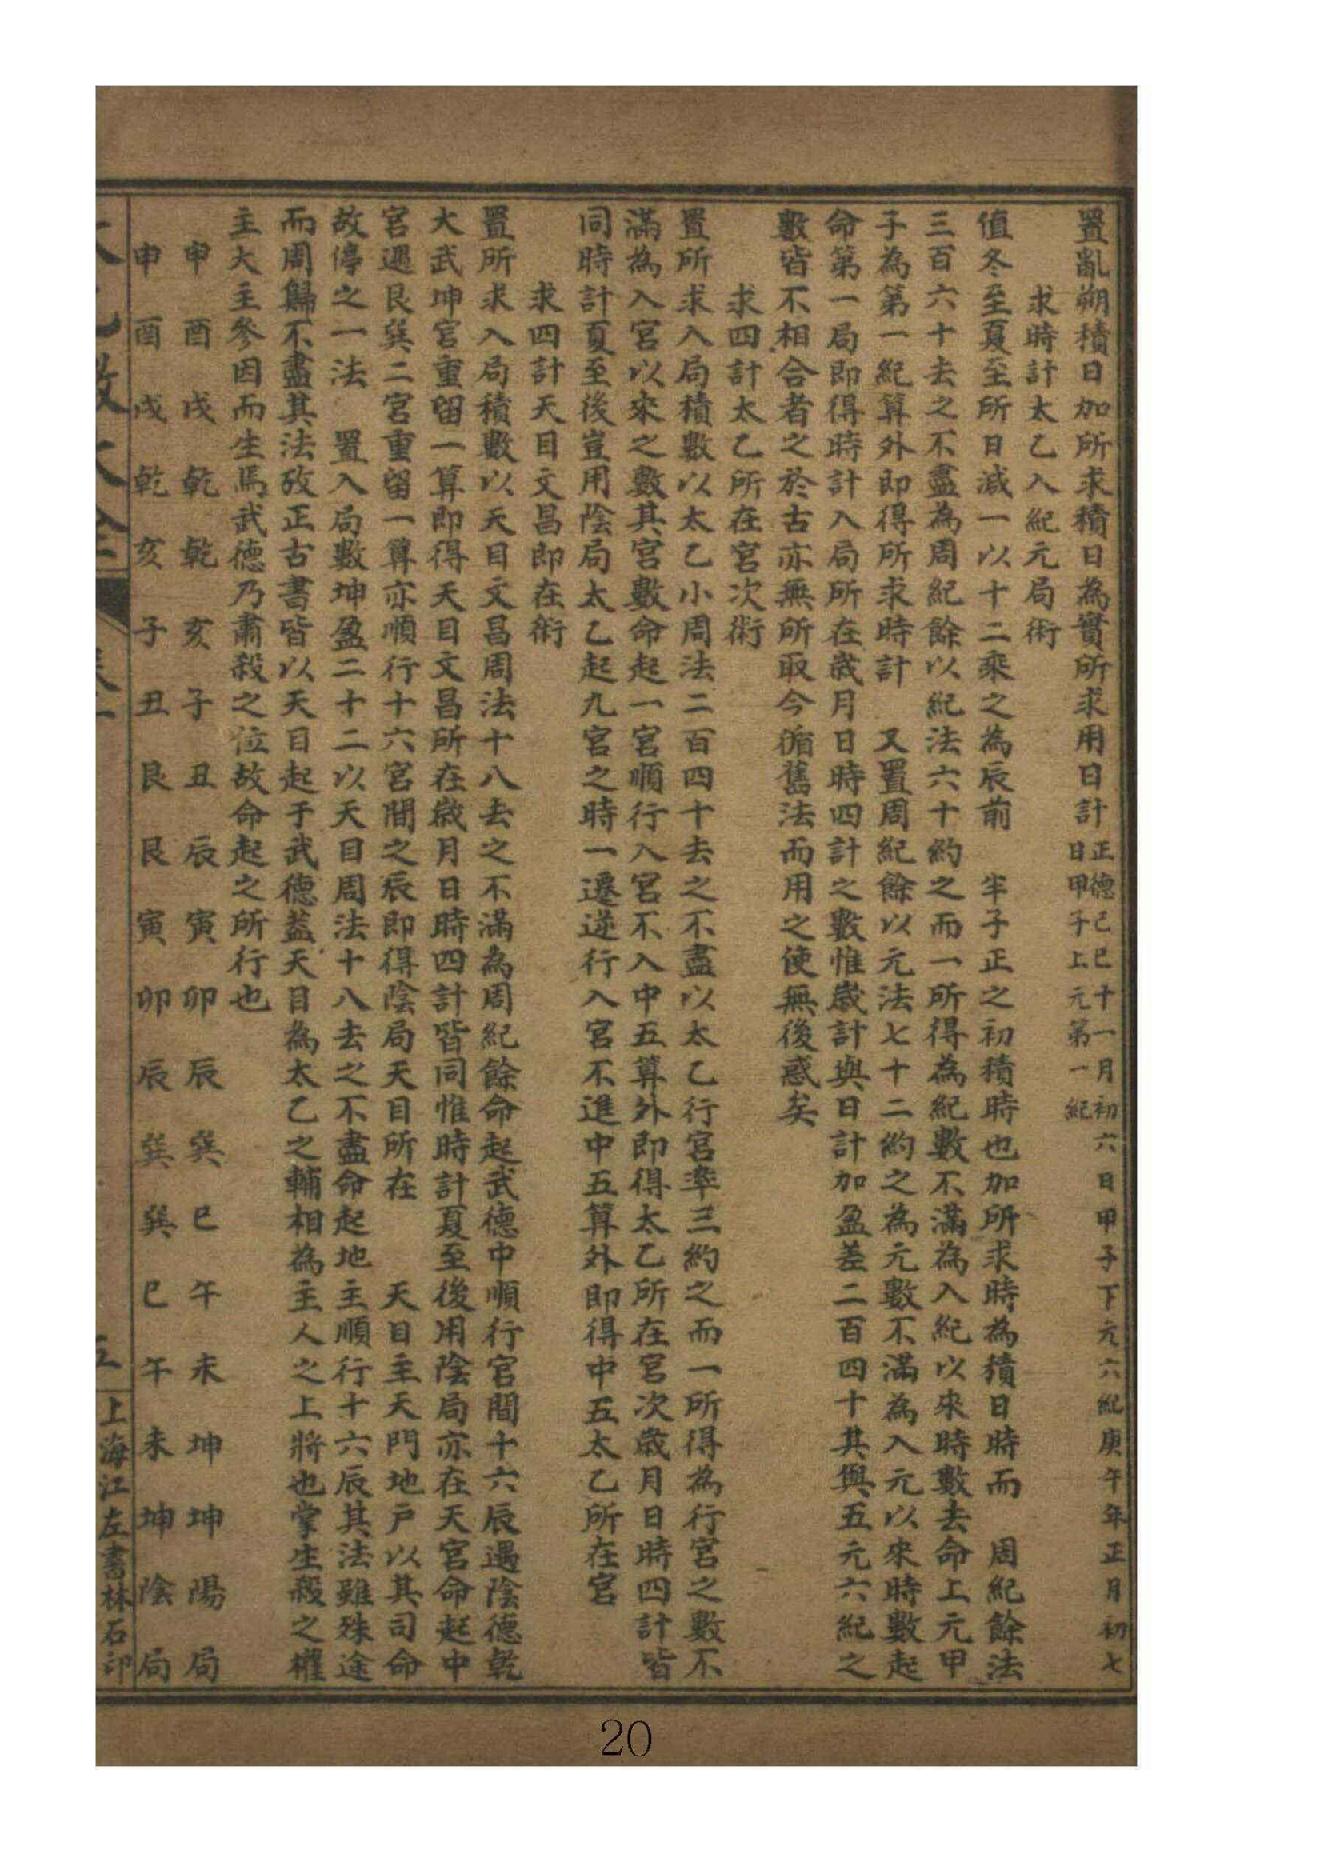 置亂朔積日加所求積日為實所求用日計正德己巳十一月初六日甲子下元六紀庚午年正月初七日甲子上元第一紀
求時計太乙入紀元局術
值冬至夏至所日減一以十二乘之為辰前 半子正之初積時也加所求時為積日時而 周紀餘法
三百六十去之不盡為周紀餘以紀法六十約之而一所得為紀數不滿為入紀以來時數去命上元甲
子為第一紀算外即得所求時計 又置周紀餘以元法七十二約之為元數不滿為入元以來時數起
命第一局即得時計入局所在歲月日時四計之數惟歲計與日計加盈差二百四十其與五元六紀之
數皆不相合者之於古亦無所取今循舊法而用之使無後惑矣
求四計太乙所在宮次術
置所求入局積數以太乙小周法二百四十去之不盡以太乙行宮率三約之而一所得為行宮之數不
滿為入宮以來之數其宮數命起一宮順行入宮不入中五算外即得太乙所在宮次歲月日時四計皆
同時計夏至後豈用陰局太乙起九宮之時一遷逆行入宮不進中五算外即得中五太乙所在宮
求四計天目文昌即在術
置所求入局積數以天目文昌周法十八去之不滿為周紀餘命起武德中順行宮間十六辰遇陰德乾
大武坤宮重留一算即得天目文昌所在歲月日時四計皆同惟時計夏至後用陰局亦在天宮命起中
宮遇艮巽二宮重留一算亦順行十六宮間之辰即得陰局天目所在 天目主天門地戶以其司命
故停之一法 置入局數坤盈二十二以天目周法十八去之不盡命起地主順行十六辰其法雖殊途
而周歸不盡其法攷正古書皆以天目起于武德蓋天目為太乙之輔相為主人之上將也掌生殺之權
主大主參因而生焉武德乃肅殺之位故命起之所行也
申酉戌乾乾亥子丑辰寅卯辰巽巳午未坤坤陽局
申酉戌乾亥子丑艮艮寅卯辰巽巽巳午未坤陰局
五
上海江左書林石印
20